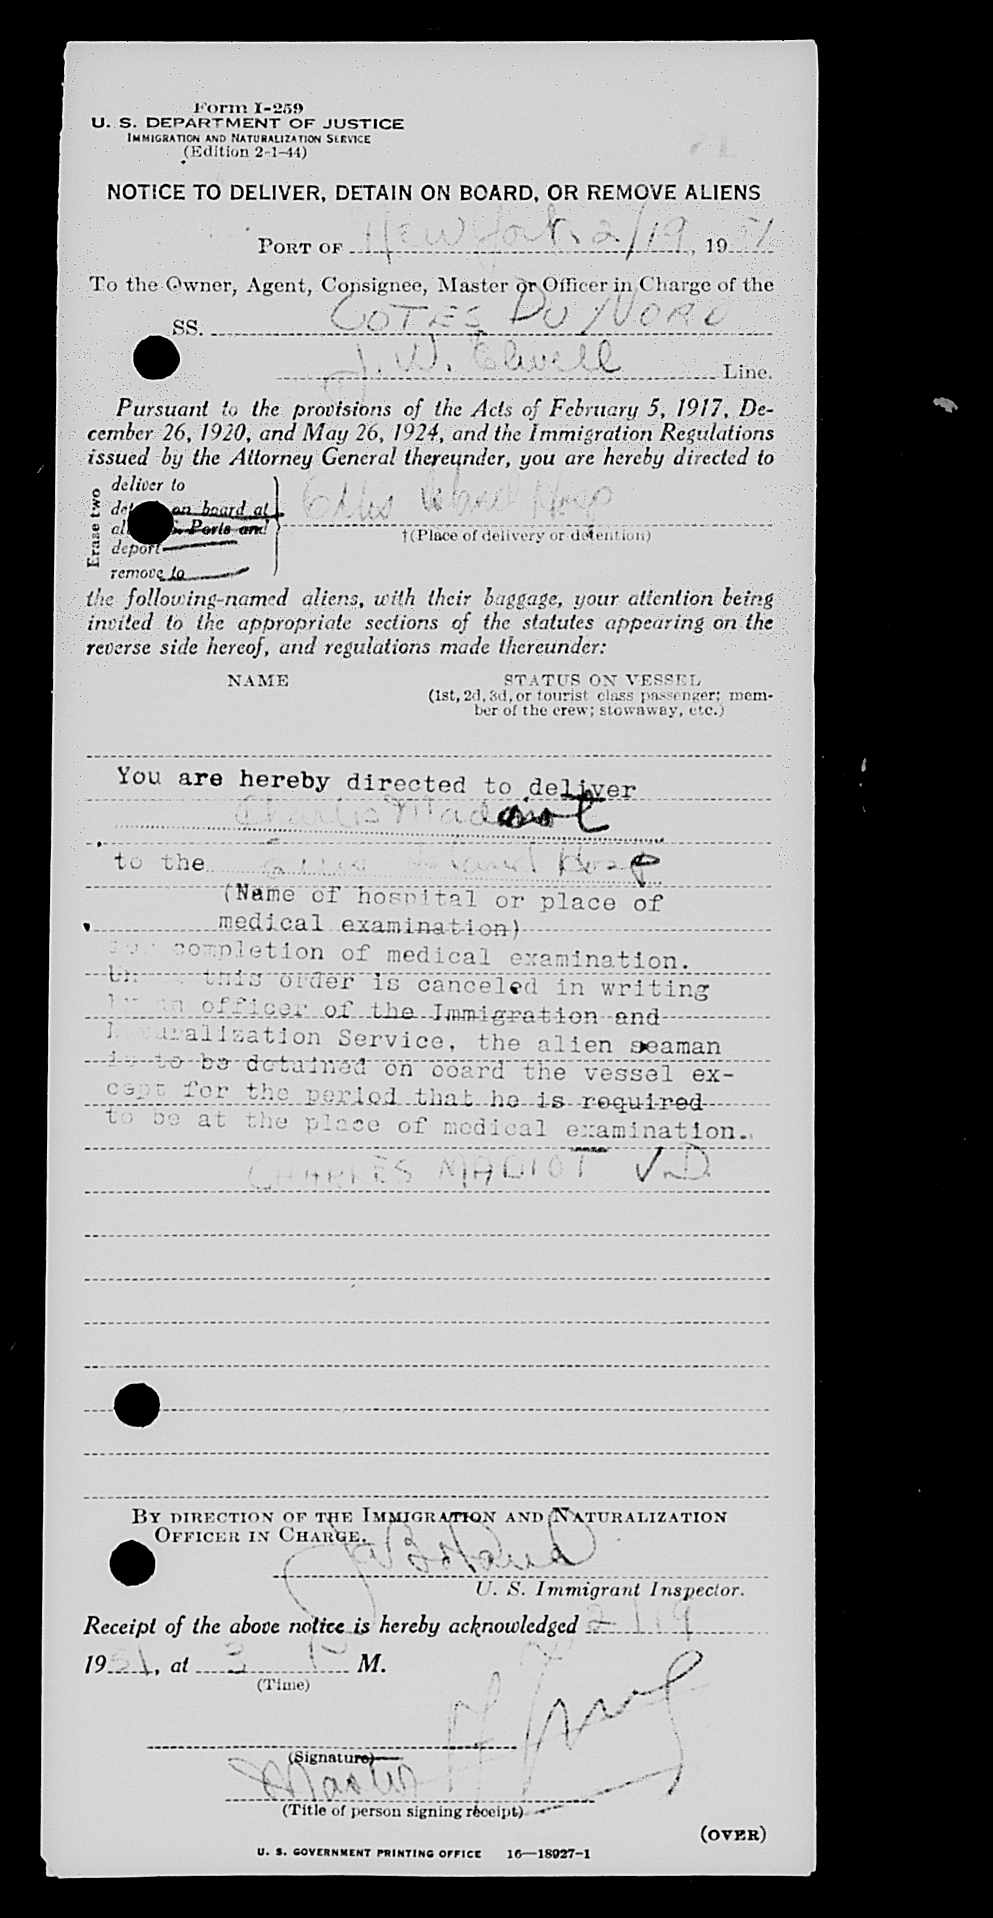 Form I-259
U. S. DEPARTMENT OF JUSTICE
IMMIGRATION AND NATURALIZATION SERVICE
(Edition 2-1-44)
NOTICE TO DELIVER, DETAIN ON BOARD, OR REMOVE ALIENS
PORT OF New York 2/19, 1951
To the Owner, Agent, Consignee, Master or Officer in Charge of the
SS. COTES DU NORD
J. W. Elwell Line.
Pursuant to the provisions of the Acts of February 5, 1917, De-
cember 26, 1920, and May 26, 1924, and the Immigration Regulations
issued by the Attorney General thereunder, you are hereby directed to
Erase two
deliver to
on board at
Ports and
deport
remove to
Ellis Island Hosp
†(Place of delivery or detention)
the following-named aliens, with their baggage, your attention being
invited to the appropriate sections of the statutes appearing on the
reverse side hereof, and regulations made thereunder:
NAME
STATUS ON VESSEL
(1st, 2d, 3d, or tourist class passenger; mem-
ber of the crew; stowaway, etc.)
You are hereby directed to deliver
Charles Madiot
to the Ellis Island Hosp
(Name of hospital or place of
medical examination)
for completion of medical examination.
this order is canceled in writing
by an officer of the Immigration and
Naturalization Service, the alien seaman
is to be detained on board the vessel ex-
cept for the period that he is required
to be at the place of medical examination.
CHARLES MADIOT V.D.
BY DIRECTION OF THE IMMIGRATION AND NATURALIZATION
OFFICER IN CHARGE.
U. S. Immigrant Inspector.
Receipt of the above notice is hereby acknowledged 2/19
1951, at 3 P M.
(Time)
(Signature)
Master
(Title of person signing receipt)
(OVER)
U. S. GOVERNMENT PRINTING OFFICE 16—18927-1